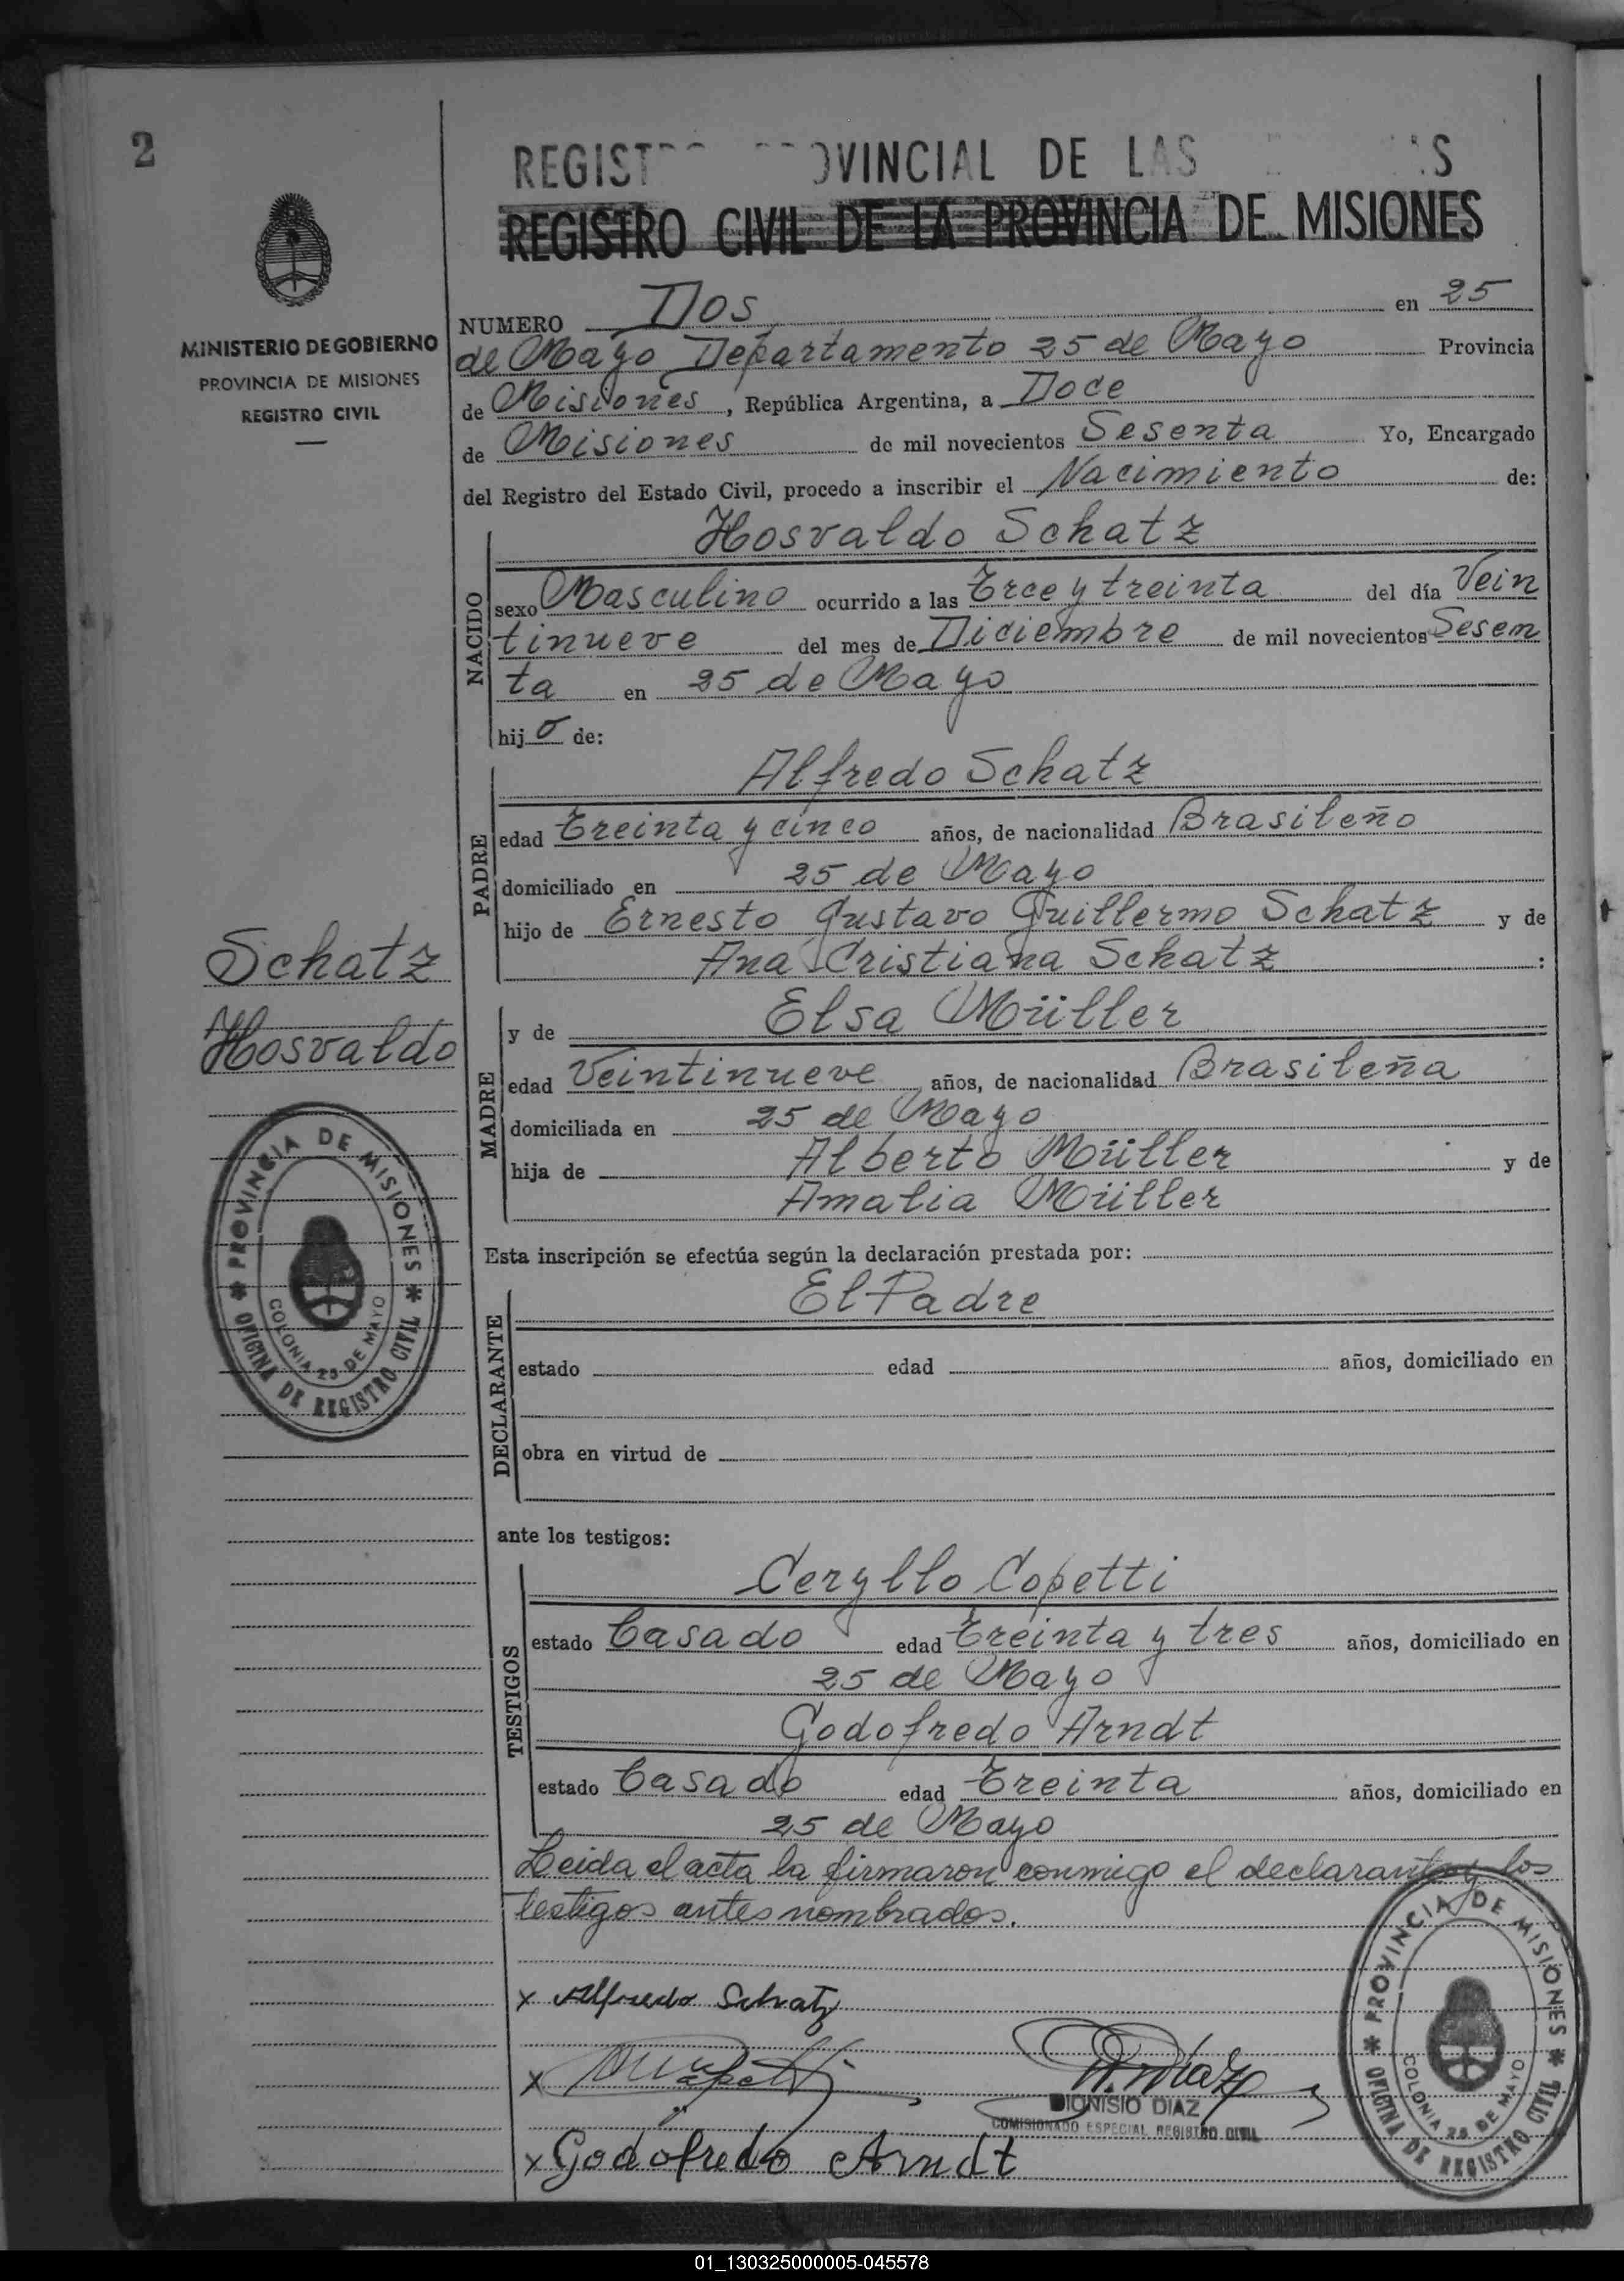 2
REGIST OVINCIAL DE LAS S
REGISTRO CIVIL DE LA PROVINCIA DE MISIONES
MINISTERIO DE GOBIERNO
PROVINCIA DE MISIONES
REGISTRO CIVIL
NUMERO Dos en 25
de Mayo Departamento 25 de Mayo Provincia
de Misiones, República Argentina, a Doce
de Misiones de mil novecientos Sesenta Yo, Encargado
del Registro del Estado Civil, procedo a inscribir el Nacimiento de:
Hosvaldo Schatz
NACIDO
sexo Masculino ocurrido a las Trce y treinta del día Vein
tinueve del mes de Diciembre de mil novecientos Sesen
ta en 25 de Mayo
hijo de:
Alfredo Schatz
PADRE
edad Treinta y cinco años, de nacionalidad Brasileño
domiciliado en 25 de Mayo
hijo de Ernesto Gustavo Guillermo Schatz y de
Ana Cristiana Schatz :
Schatz
Hosvaldo
y de Elsa Müller
MADRE
edad Veintinueve años, de nacionalidad Brasileña
domiciliada en 25 de Mayo
hija de Alberto Müller y de
Amalia Müller
PROVINCIA DE MISIONES
OFICINA DE REGISTRO CIVIL
COLONIA 25 DE MAYO
Esta inscripción se efectúa según la declaración prestada por:
El Padre
DECLARANTE
estado edad años, domiciliado en
obra en virtud de
ante los testigos:
Ceryllo Copetti
TESTIGOS
estado Casado edad Treinta y tres años, domiciliado en
25 de Mayo
Godofredo Arndt
estado Casado edad Treinta años, domiciliado en
25 de Mayo
Leida el acta la firmaron conmigo el declarante y los
testigos antes nombrados.
x Alfredo Schatz
x
DIONISIO DIAZ
COMISIONADO ESPECIAL REGISTRO CIVIL
x Godofredo Arndt
PROVINCIA DE MISIONES
OFICINA DE REGISTRO CIVIL
COLONIA 25 DE MAYO
01_130325000005-045578